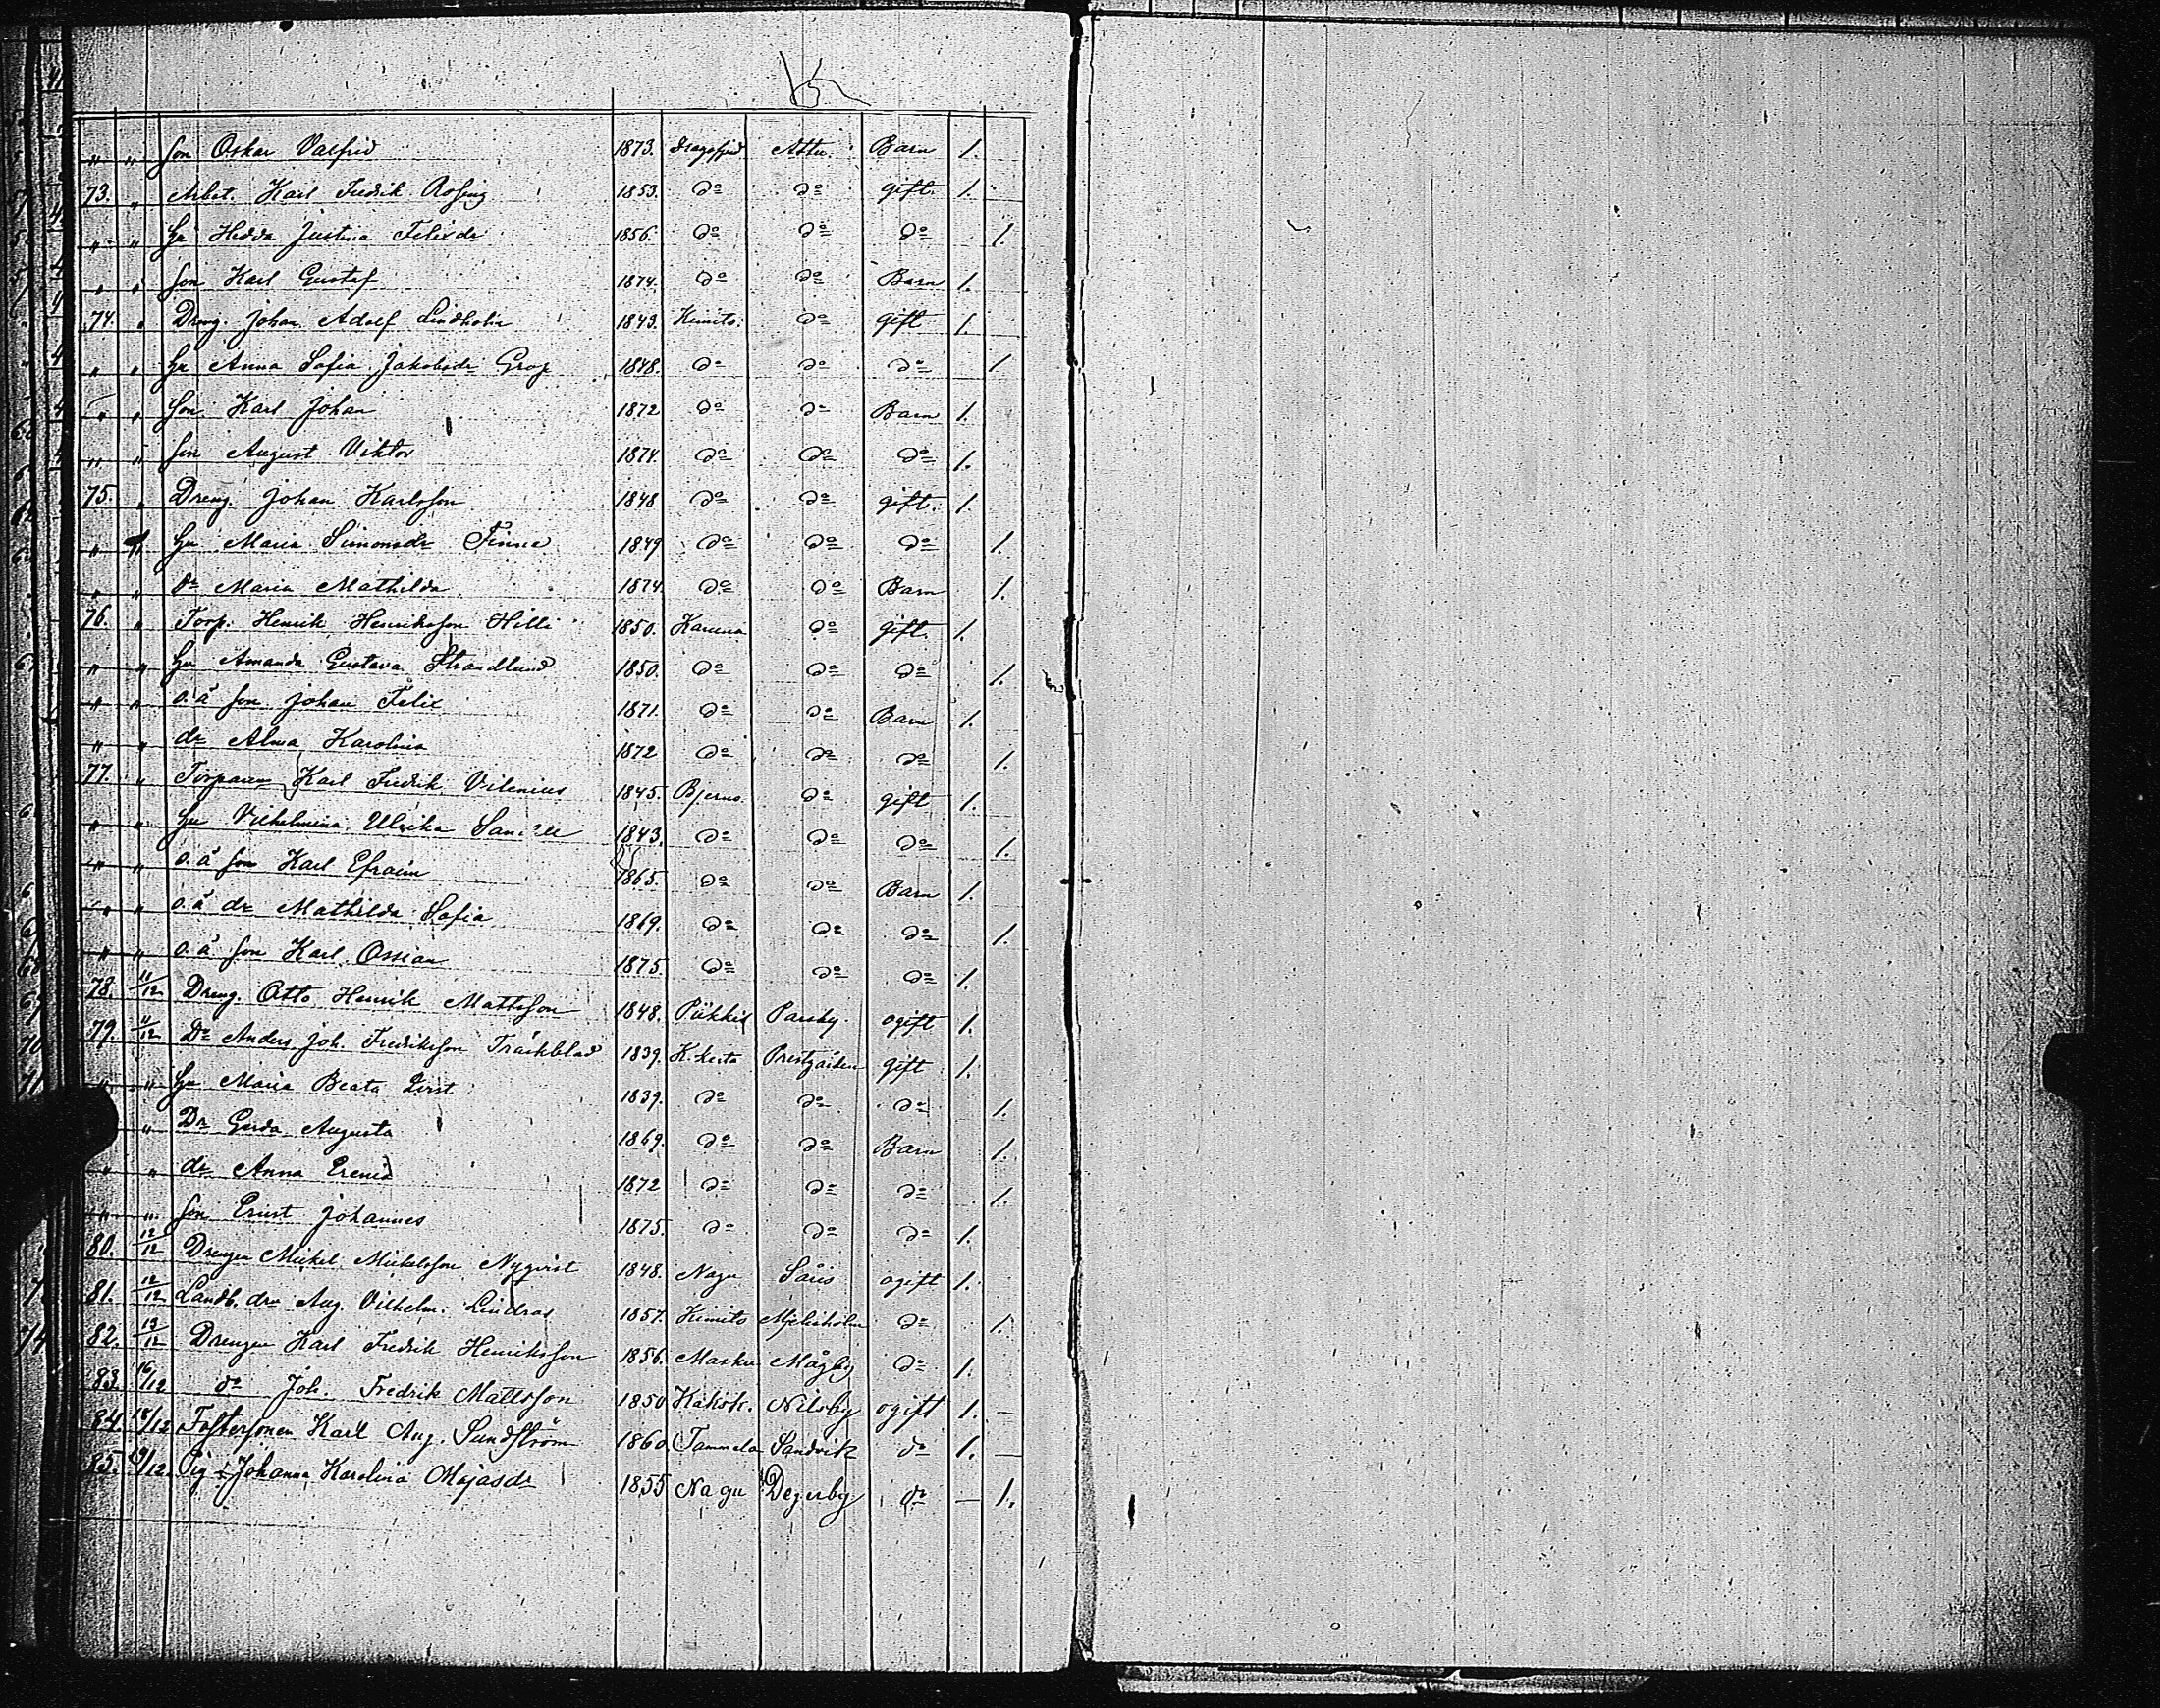 15
„ „ son Oskar Valfrid 1873. Dragsfjerd Attu. Barn 1.
73. „ Arbet. Karl Fredrik Rosing 1853. Do Do gift. 1.
„ „ Hu Hedda Justina Felixdr 1856. Do Do Do 1.
„ „ son Karl Gustaf 1874. Do Do Barn 1.
74. „ Dreng. Johan Adolf Lindholm 1843. Kimito. Do gift 1.
„ „ Hu Anna Sofia Jakobsdr Grop 1848. Do Do Do 1
„ „ son Karl Johan 1872 Do Do Barn 1.
„ „ son August Viktor 1874. Do Do Do 1.
75. „ Dreng Johan Karlsson 1848 Do Do gift. 1.
„ „ Hu Maria Simonsdr Finne 1849 Do Do Do 1.
„ „ dr Maria Mathilda 1874. Do Do Barn 1.
76. „ Torp. Henrik Henriksson Hilli 1850. Karuna Do gift. 1.
„ „ Hu Amanda Gustava Strandlund 1850. Do Do Do 1.
„ „ o.ä son Johan Felix 1871. Do Do Barn 1.
„ „ dr Alma Karolina 1872 Do Do Do 1.
77. „ Torparen Karl Fredrik Vilenius 1845. Bjerno. Do gift 1.
„ „ Hu Vilhelmina Ulrika 1843. Do Do Do 1.
„ „ o.ä son Karl Efraim 1865. Do Do Barn 1.
„ „ o.ä dr Mathilda Sofia 1869. Do Do Do 1.
„ „ o.ä son Karl Ossian 1875. Do Do Do 1.
78. 11/12 Dreng. Otto Henrik Mattsson 1848. Piikkis Parsby. ogift 1.
79. 11/12 Do Anders Joh. Fredriksson Träskblad 1839. K. Prestgården gift 1.
„ „ Hu Maria Beata 1839. Do Do Do 1.
„ „ Dr Gerda Augusta 1869. Do Do Barn 1.
„ „ dr Anna Irenia 1872 Do Do Do 1.
„ „ son Ernst Johannes 1875. Do Do Do 1.
80. 12/12 Drengen Mickel Mickelsson Nyqvist 1848. Nagu Såris ogift 1.
81. 12/12 Landb. dr Aug. Vilhelm. Lindros 1857. Kimito Mjelisholm Do 1.
82. 13/12 Drengen Karl Fredrik Henriksson 1856. Masku Mågby Do 1.
83. 16/12 do Joh. Fredrik Mattsson 1850 Kaksk. Nilsby ogift 1. —
84. 18/12 Fostersonen Karl Aug. Sundström 1860 Tammela Sandvik do 1. —
85. 19/12 Pig. Johanna Karolina Majasdr 1855 Nagu Degerby do — 1.